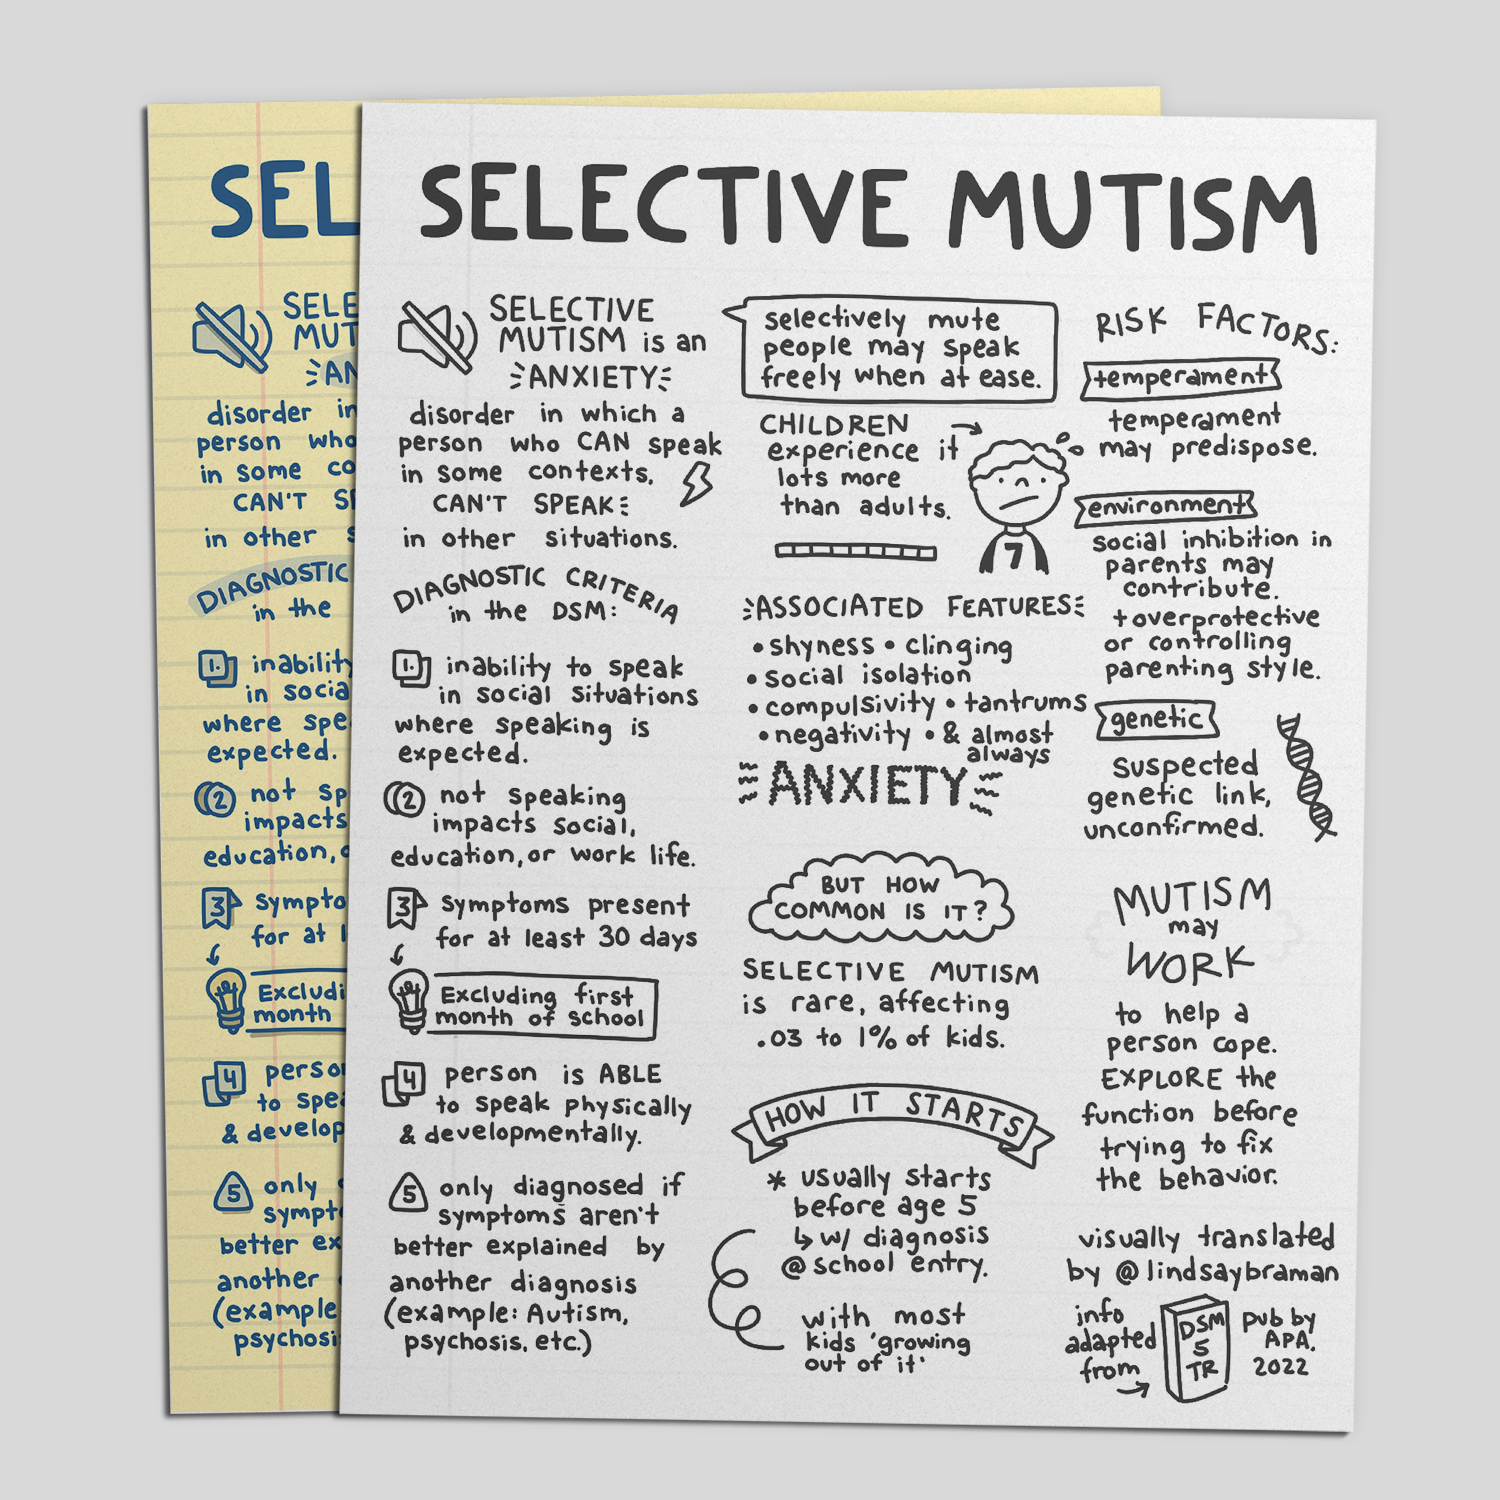 SEL
SELE
MUT
AN
disorder in
person who
in some co
CAN'T SP
in other s
DIAGNOSTIC
in the
1. inability
in socia
where spe
expected.
2 not sp
impacts
education, o
3 sympto
for at l
Excludi
month
4 person
to spea
& develop
5 only d
sympto
better ex
another
(example
psychosi
SELECTIVE MUTISM
SELECTIVE
MUTISM is an
ANXIETY
disorder in which a
person who CAN speak
in some contexts,
CAN'T SPEAK
in other situations.
DIAGNOSTIC CRITERIA
in the DSM:
1. inability to speak
in social situations
where speaking is
expected.
2 not speaking
impacts social,
education, or work life.
3 symptoms present
for at least 30 days
Excluding first
month of school
4 person is ABLE
to speak physically
& developmentally.
5 only diagnosed if
symptoms aren't
better explained by
another diagnosis
(example: Autism,
psychosis, etc.)
selectively mute
people may speak
freely when at ease.
CHILDREN
experience it
lots more
than adults.
7
ASSOCIATED FEATURES
• shyness • clinging
• social isolation
• compulsivity • tantrums
• negativity • & almost
always
ANXIETY
BUT HOW
COMMON IS IT?
SELECTIVE MUTISM
is rare, affecting
.03 to 1% of kids.
HOW IT STARTS
* usually starts
before age 5
↳ w/ diagnosis
@ school entry.
with most
kids 'growing
out of it'
RISK FACTORS:
temperament
temperament
may predispose.
environment
social inhibition in
parents may
contribute.
+ overprotective
or controlling
parenting style.
genetic
suspected
genetic link,
unconfirmed.
MUTISM
may
WORK
to help a
person cope.
EXPLORE the
function before
trying to fix
the behavior.
visually translated
by @lindsaybraman
info
adapted
from
DSM
5
TR
pub by
APA.
2022